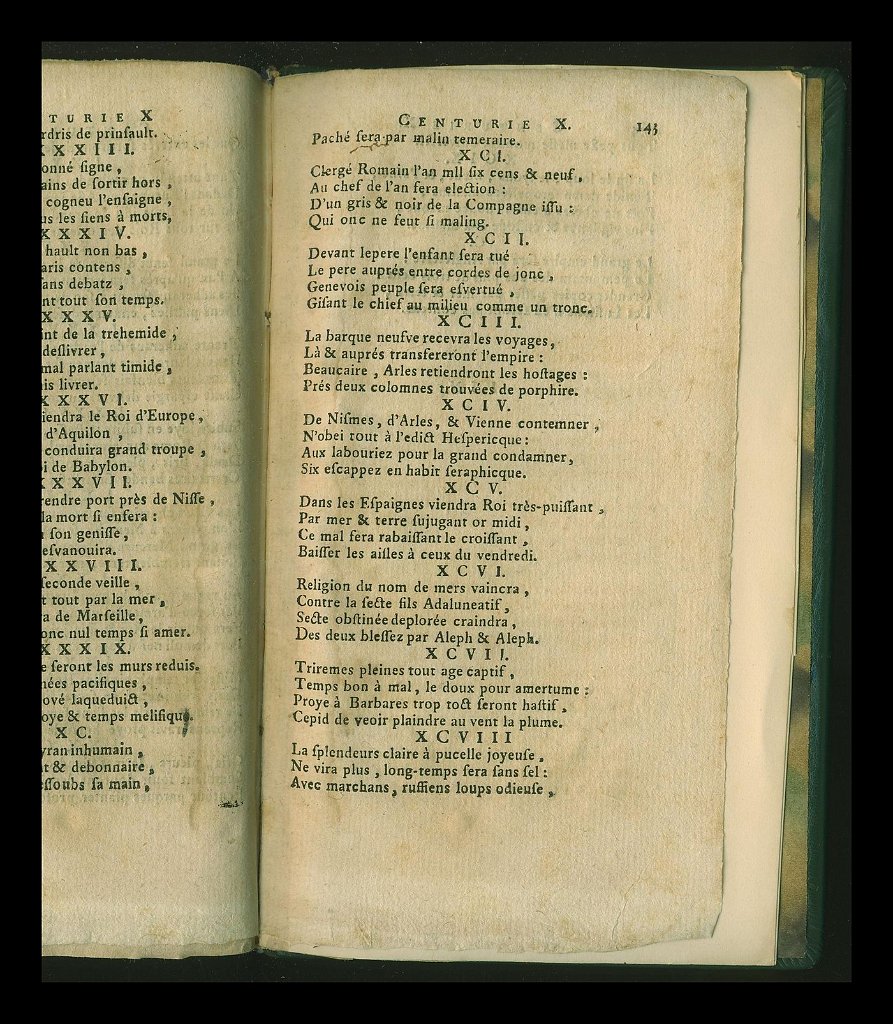 TURIE X
rdris de prinſault.
XXXIII.
onné ſigne,
ains de ſortir hors,
cogneu l'enſaigne,
us les ſiens à morts,
XXXIV.
hault non bas,
aris contens,
ſans debatz,
nt tout ſon temps.
XXXV.
int de la trehemide,
deſlivrer,
mal parlant timide,
is livrer.
XXXVI.
iendra le Roi d'Europe,
d'Aquilon,
conduira grand troupe,
i de Babylon.
XXXVII.
rendre port près de Niſſe,
la mort ſi enfera :
ſon geniſſe,
eſvanouira.
XXXVIII.
ſeconde veille,
t tout par la mer,
a de Marſeille,
onc nul temps ſi amer.
XXXIX.
e ſeront les murs reduis.
nées pacifiques,
ové laqueduict,
oye & temps melifique.
XC.
yran inhumain,
t & debonnaire,
eſſoubs ſa main,
CENTURIE X. 143
Paché ſera par malin temeraire.
XCI.
Clergé Romain l'an mil ſix cens & neuf,
Au chef de l'an ſera election :
D'un gris & noir de la Compagne iſſu :
Qui onc ne feut ſi maling.
XCII.
Devant lepere l'enfant ſera tué
Le pere auprés entre cordes de jonc,
Genevois peuple ſera eſvertué,
Giſant le chief au milieu comme un tronc.
XCIII.
La barque neufve recevra les voyages,
Là & auprés transfereront l'empire :
Beaucaire, Arles retiendront les hoſtages :
Prés deux colomnes trouvées de porphire.
XCIV.
De Niſmes, d'Arles, & Vienne contemner,
N'obei tout à l'edict Heſpericque :
Aux labouriez pour la grand condamner,
Six eſcappez en habit ſeraphicque.
XCV.
Dans les Eſpaignes viendra Roi très-puiſſant,
Par mer & terre ſujugant or midi,
Ce mal fera rabaiſſant le croiſſant,
Baiſſer les aiſles à ceux du vendredi.
XCVI.
Religion du nom de mers vaincra,
Contre la ſecte fils Adaluneatif,
Secte obſtinée deplorée craindra,
Des deux bleſſez par Aleph & Aleph.
XCVII.
Triremes pleines tout age captif,
Temps bon à mal, le doux pour amertume :
Proye à Barbares trop toſt ſeront haſtif,
Cepid de veoir plaindre au vent la plume.
XCVIII
La ſplendeurs claire à pucelle joyeuſe,
Ne vira plus, long-temps ſera ſans ſel :
Avec marchans, ruffiens loups odieuſe,